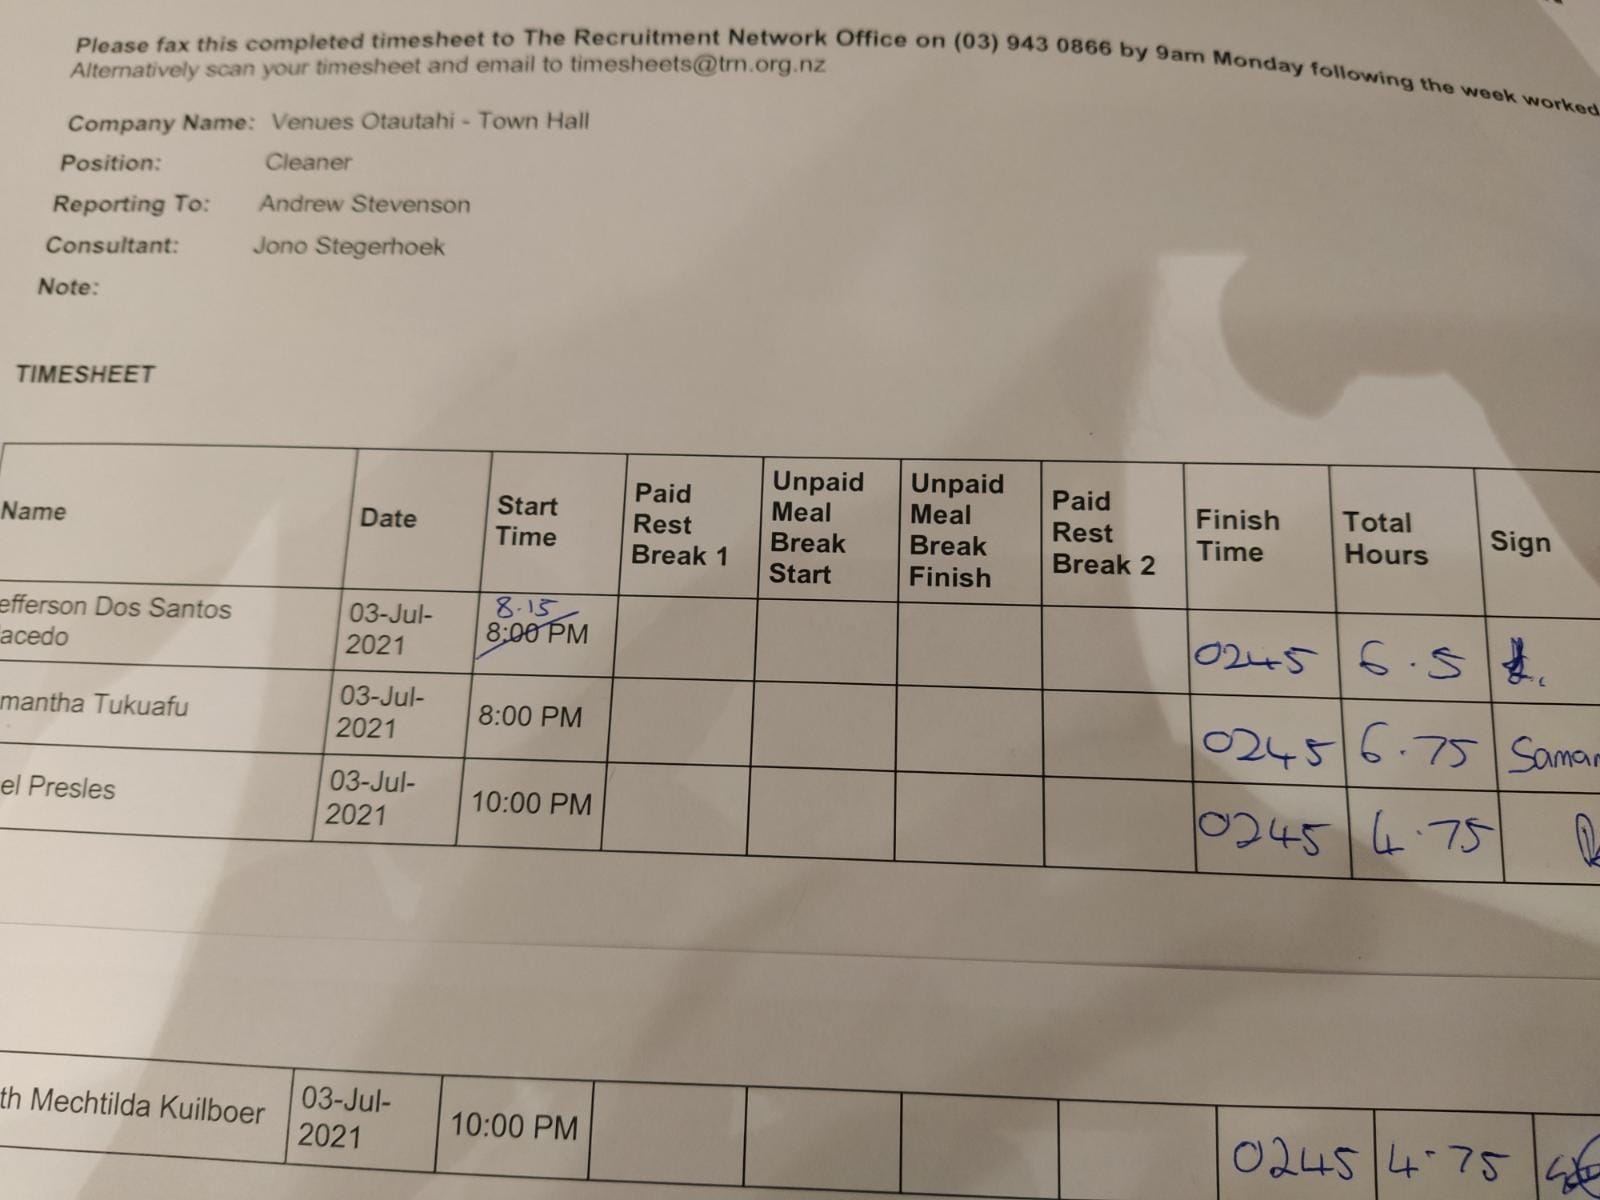 Please fax this completed timesheet to The Recruitment Network Office on (03) 943 0866 by 9am Monday following the week worked
Alternatively scan your timesheet and email to timesheets@trn.org.nz
Company Name: Venues Otautahi - Town Hall
Position: Cleaner
Reporting To: Andrew Stevenson
Consultant: Jono Stegerhoek
Note:
TIMESHEET
Name Date Start Time Paid Rest Break 1 Unpaid Meal Break Start Unpaid Meal Break Finish Paid Rest Break 2 Finish Time Total Hours Sign
efferson Dos Santos acedo 03-Jul-2021 8.15 8:00 PM 0245 6.5
mantha Tukuafu 03-Jul-2021 8:00 PM 0245 6.75 Saman
el Presles 03-Jul-2021 10:00 PM 0245 4.75
th Mechtilda Kuilboer 03-Jul-2021 10:00 PM 0245 4.75